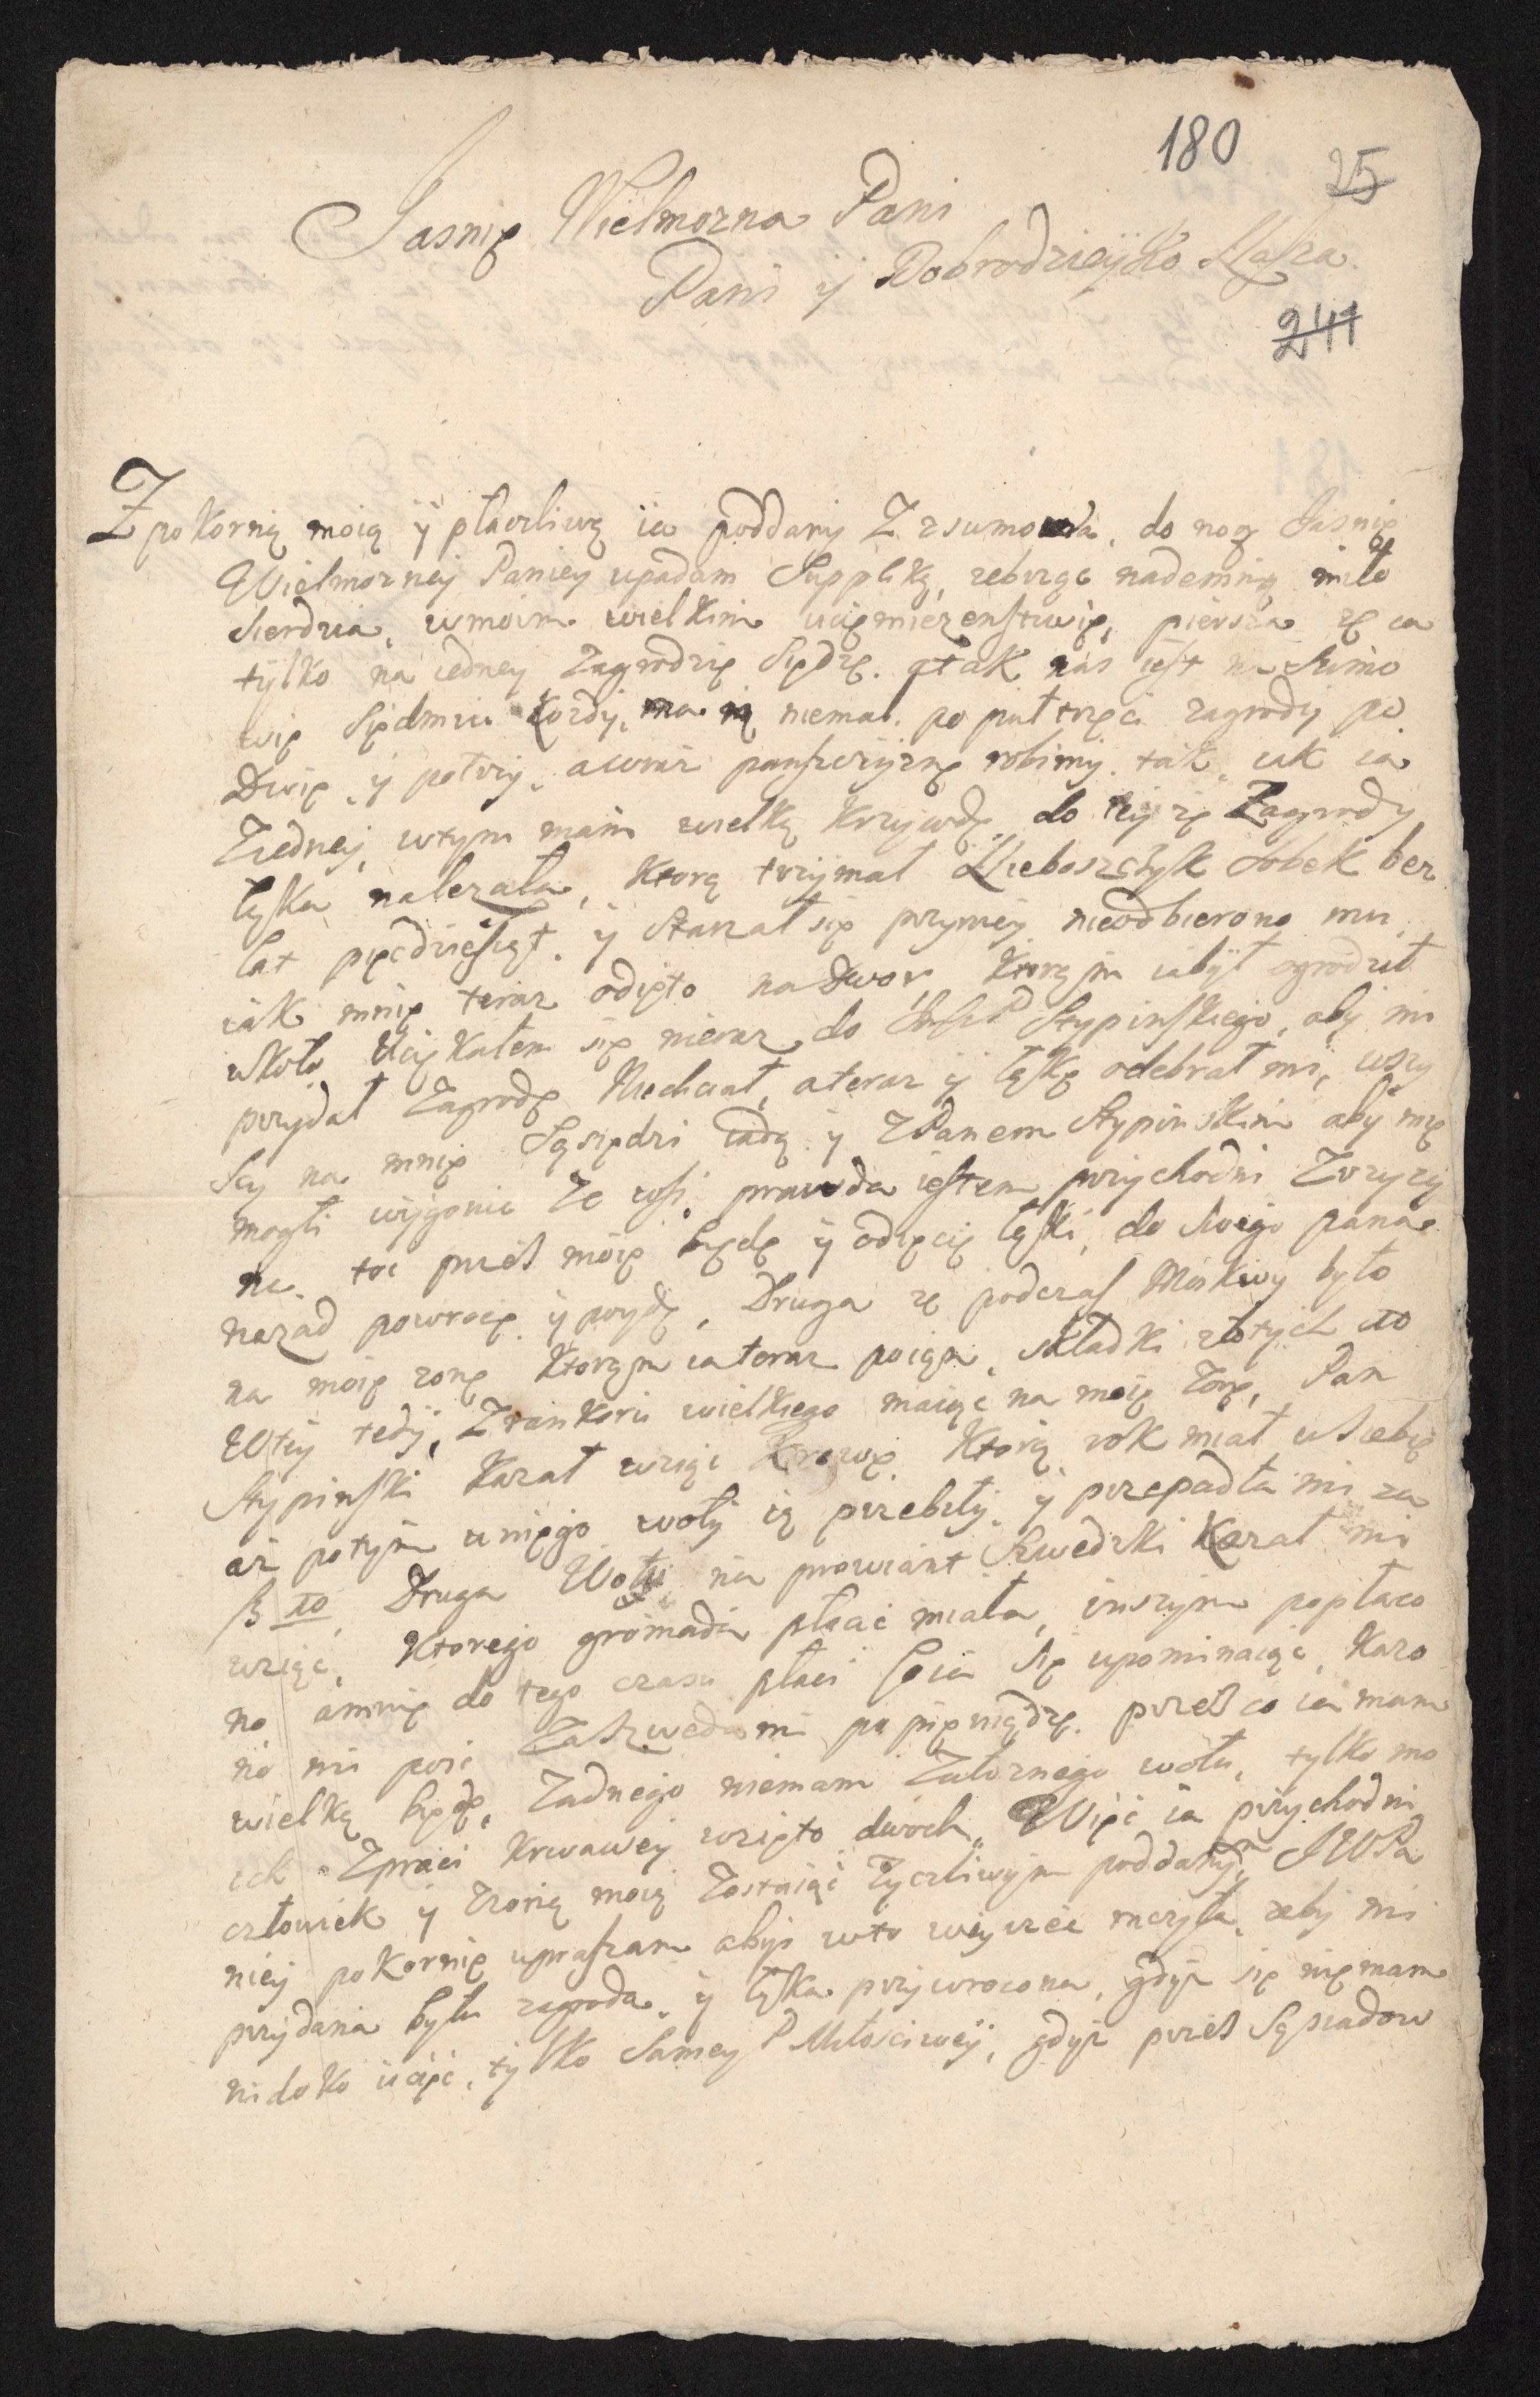 180
25
Jasnię Wielmozna Pani
Pani y Dobrodzieyko Nasza
241
Z pokornią moią ÿ płacżliwą ia poddany Z rsumowa, do nog Jasnię
Wielmozney Paniey upadam Supplikę, zebrząc nademnią miło
sierdzia, wmoim wielkim ucięmiezenstwię, piersza zę ia
tylko na iedney Zagrodzię Siędzę. a tak nas iest na Sumo
wię Siędmiu kozdy, ma ią niemal. po pułtrzęci zagrody po
Dwię, y potrzy, a wraz panszczyznę robimy. tak iak ia
Ziedney, wtym mam wielką Krzywdę, do teyzę Zagrody
łąka nalezała, Ktorą trzymał Nieboszczyk Sobek bez
lat pięcdziesiąt, y Stanał się przymiey nieodbierono mu,
iak mnię teraz odięto na Dwor, Ktorązm iabył ogrodził
wkoło Uciękałem się nieraz do Stypinskiego, aby mi
przydał Zagrodę Niechciał, a teraz y łąkę odebrał mi, wszy
scy na mnię Sąsiędzi iadą y ZPanem Stypinskim aby mię
mogli wygonic Ze wsi, prawda iestem przychodni Zvzyzy
na. toc przes moię biędę y odięcię łąki, do swego pana
nazad powrocę y poydę, Druga zę podczas Moskwy było
na moię zonę Ktorązm ia teraz poiął, składki złotych 10
Wtey tedy, Zrankoru wielkiego maiąc na moię Zonę, Pan
Stypinski Kazał wziąc Krowę Ktorą rok miał usiebię
az potym uniego woły ią przebiły, y przepadła mi za
10, Druga Wołu na prowiant Szwedzki Kazał mi
wziąc, Ktorego gromada płacic miała, inszym popłaco
no amnię do tego czasu płaci Coia się upominaiąc, Kazo
no mi poic Za Szwedami po pięniądzę. przes co ia mam
wielką biędę, Zadnego niemam Załoznego wołu, tylko mo
ich Zpraci krwawey wzięto dwoch, Więc ia przychodni
człowiek y Zzonią moią Zostaiąc Zyczliwym poddanym JWPa
niey pokornię uprasam abys wto weyrzec raczyła, zeby mi
przydana była zagroda, y łąka przywrocona, gdyz się niemam
nidoko uciec, tylko Samey P Miłosciwey, gdyz przes Sąsiadow